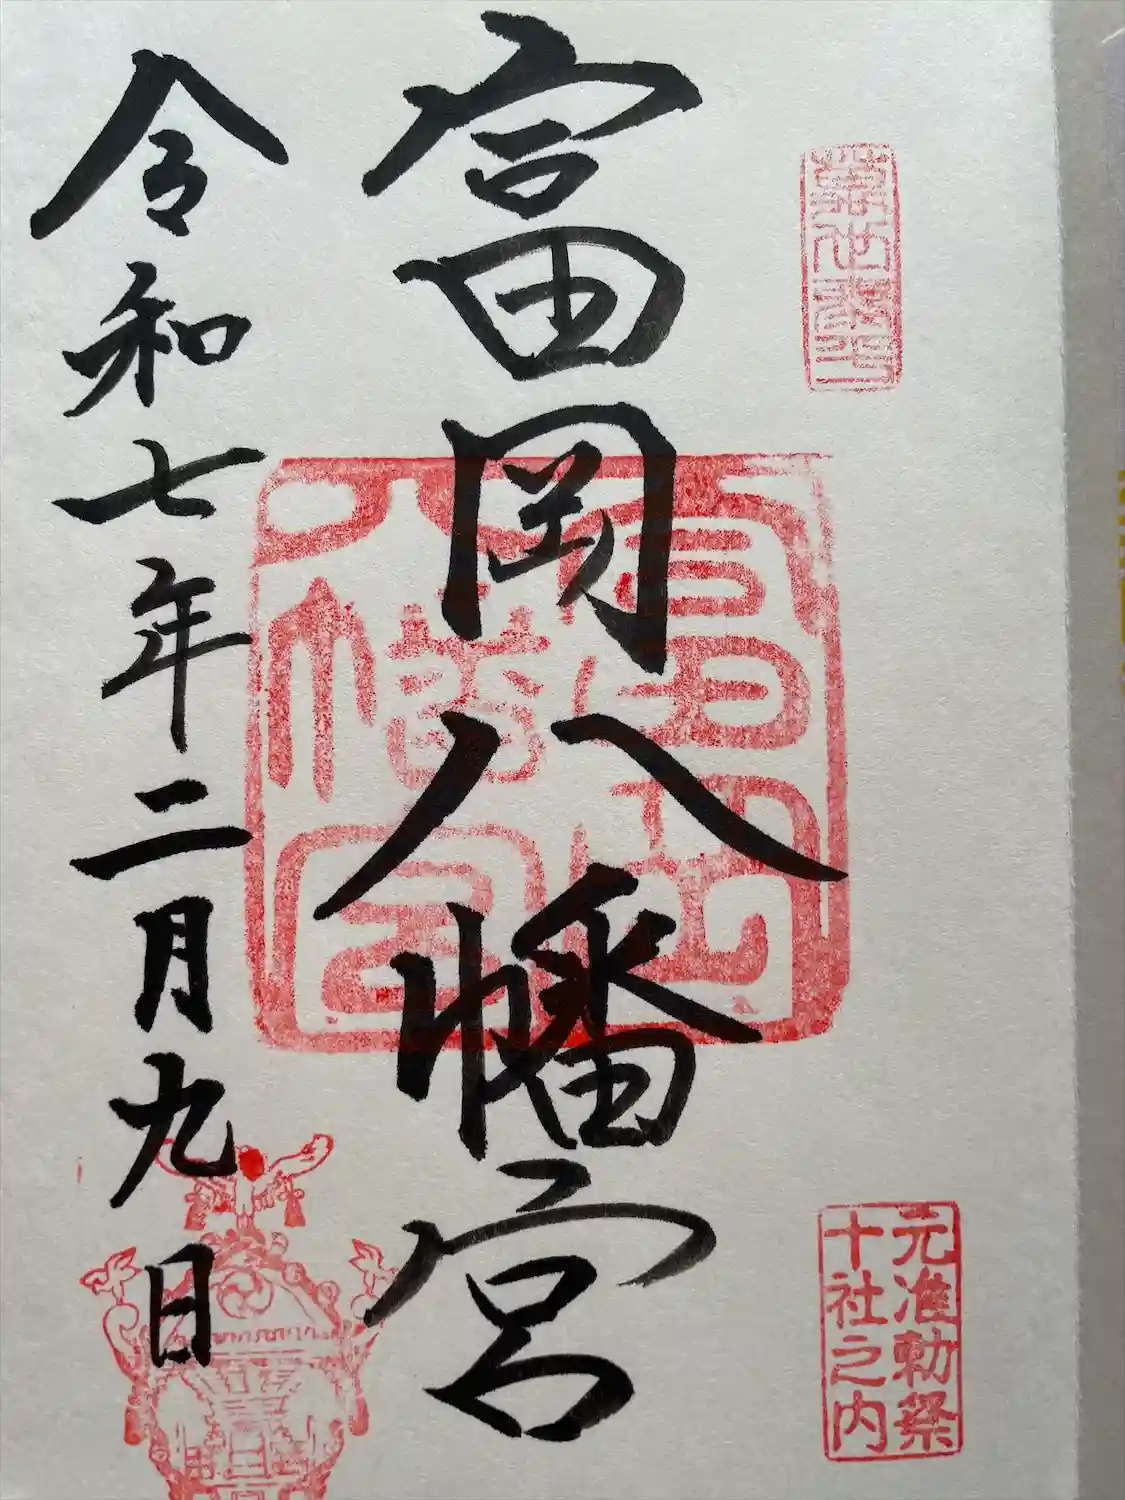 富岡八幡宮
令和七年二月九日
富岡
八幡宮
元准勅祭
十社之内